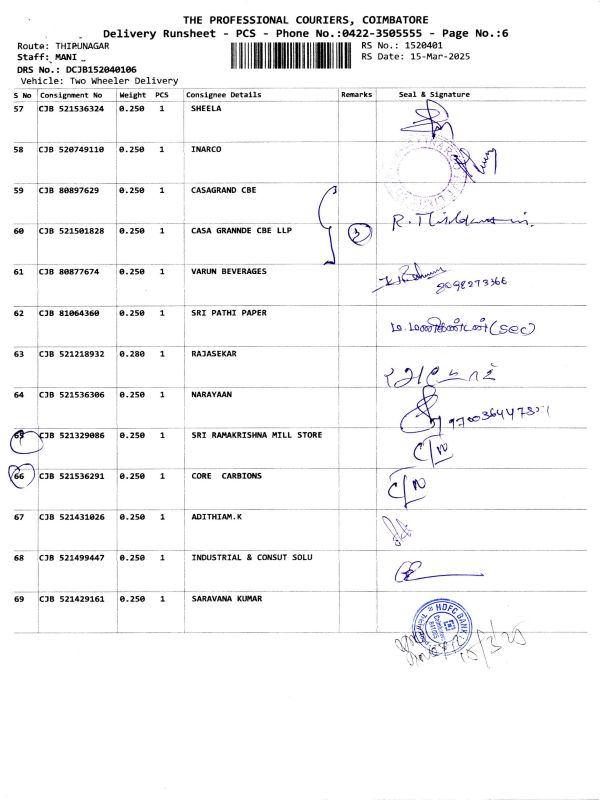 THE PROFESSIONAL COURIERS, COIMBATORE
Delivery Runsheet - PCS - Phone No.:0422-3505555 - Page No.:6
Route: THIPUNAGAR RS No.: 1520401
Staff: MANI RS Date: 15-Mar-2025
DRS No.: DCJB152040106
Vehicle: Two Wheeler Delivery
S No Consignment No Weight PCS Consignee Details Remarks Seal & Signature
57 CJB 521536324 0.250 1 SHEELA
58 CJB 520749110 0.250 1 INARCO
59 CJB 80897629 0.250 1 CASAGRAND CBE
60 CJB 521501828 0.250 1 CASA GRANNDE CBE LLP 3
61 CJB 80877674 0.250 1 VARUN BEVERAGES
9098273366
62 CJB 81064360 0.250 1 SRI PATHI PAPER
ம.மணிகண்டன் (sec)
63 CJB 521218932 0.280 1 RAJASEKAR
64 CJB 521536306 0.250 1 NARAYAAN
65 CJB 521329086 0.250 1 SRI RAMAKRISHNA MILL STORE C/N
66 CJB 521536291 0.250 1 CORE CARBIONS C/N
67 CJB 521431026 0.250 1 ADITHIAM.K
68 CJB 521499447 0.250 1 INDUSTRIAL & CONSUT SOLU
69 CJB 521429161 0.250 1 SARAVANA KUMAR
HDFC BANK
15/3/25